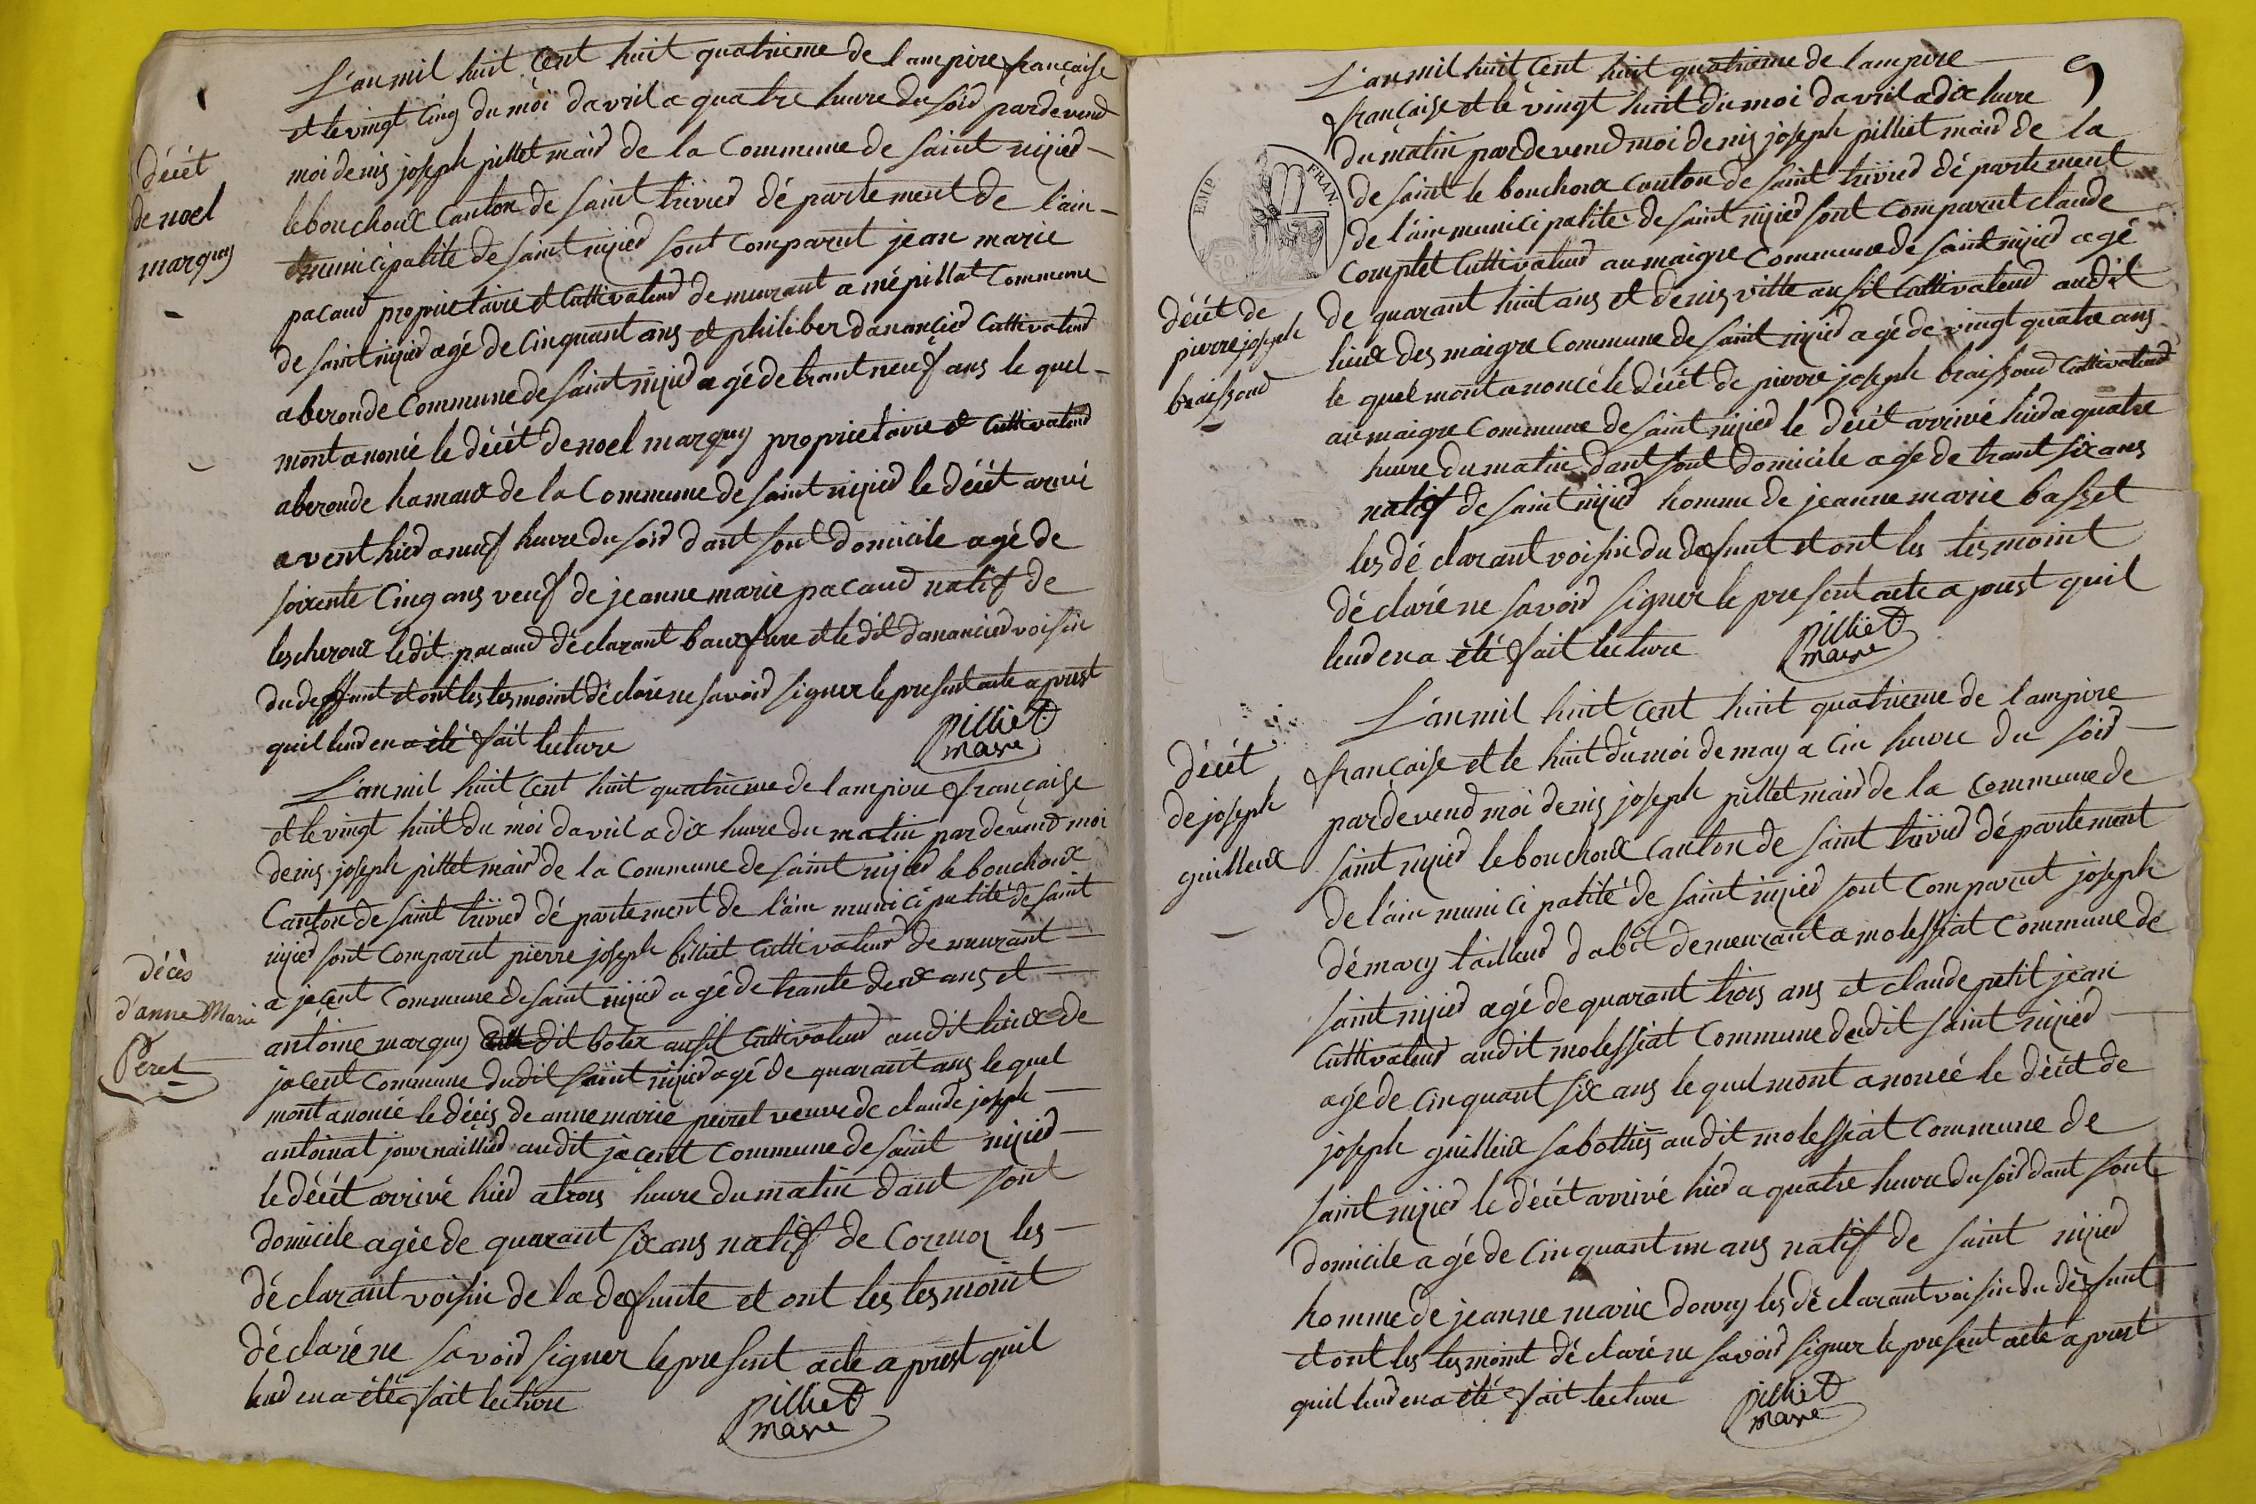 L'an mil huit cent huit quatrieme de lampire française
et le vingt cinq du moi davril a quatre heure du soir pardevend
moi denis joseph pilliet mair de la Commune de saint nijier
lebouchoux Canton de saint trivier département de l'ain
municipalité de saint nijier sont comparut jean marie
pacaud proprietaire et Cultivateur demeurant a mépillat Commune
de saint nijier agé de cinquant ans et philiber danancier Cultivateur
aberonde Commune de saint nijier agé de trant neuf ans le quel
mont anoncé le décét de noel marquy proprietaire et Cultivateur
aberonde hamaux de la Commune de saint nijier le décét arivé
avent hier a neuf heure du soir dant sont domicile agé de
soixente cinq ans veuf de jeanne marie pacaud natif de
lescheroux ledit pacaud déclarant baufrere et ledit danancier voisin
du deffunt et ont les tesmoint déclaré ne savoir signer le present acte aprest
quil leur en a été fait lecture
pilliet
maire
décét
de noel
marquy
L'an mil huit cent huit quatrieme de lampire française
et le vingt huit du moi davril a dix heure du matin pardevend moi
denis joseph pilliet mair de la Commune de saint nijier le bouchoux
Canton de saint trivier département de l'ain municipalité de saint
nijier sont comparut pierre joseph billiet Cultivateur demeurant
a jacent Commune de saint nijier agé de trante deux ans et
antoine marquy dit bolex ausit Cultivateur audit lieux de
jacent Commune dudit saint nijier agé de quarant ans le quel
mont anoncé le décés de anne marie peiret veuve de claude joseph
antoinat journaillier audit jacent Commune de saint nijier
le décét arrivé hier a trois heure du matin dant sont
domicile agée de quarant six ans natif de Cormoz les
déclarant voisin de la defunte et ont les tesmoint
déclaré ne savoir signer le present acte aprest quil
leur en a été fait lecture
pilliet
maire
décès
d'anne Marie
Peret
9
L'an mil huit cent huit quatrieme de lampire
française et le vingt huit du moi davril a dix heure
du matin pardevend moi denis joseph pilliet mair de la
de saint le bouchoux canton de saint trivier département
de l'ain municipalité de saint nijier sont comparut claude
complet Cultivateur au maigre Commune de saint nijier agé
de quarant huit ans et denis ville ausit Cultivateur audit
lieux des maigre Commune de saint nijier agé de vingt quatre ans
le quel mont anoncé le décét de pierre joseph braissoud Cultivateur
au maigre Commune de saint nijier le décét arrivé hier a quatre
heure du matin dant sont domicile agé de trant six ans
natif de saint nijier homme de jeanne marie basset
les déclarant voisin du defunt et ont les tesmoint
déclaré ne savoir signer le present acte aprest quil
leur en a été fait lecture
pilliet
maire
EMP. FRAN.
décét de
pierre joseph
braissoud
L'an mil huit cent huit quatrieme de lampire
française et le huit du moi de may a cin heure du soir
pardevend moi denis joseph pilliet mair de la commune de
saint nijier le bouchoux Canton de saint trivier département
de l'ain municipalité de saint nijier sont comparut joseph
démary tailleur dabit demeurant a molessiat Commune de
saint nijier agé de quarant trois ans et claude petit jean
Cultivateur audit molessiat Commune dudit saint nijier
agé de cinquant six ans le quel mont anoncé le décét de
joseph guilleux sabottier audit molessiat Commune de
saint nijier le décét arrivé hier a quatre heure du soir dant sont
domicile agé de cinquant un ans natif de saint nijier
homme de jeanne marie dowry les déclarant voisin du défunt
et ont les tesmoint déclaré ne savoir signer le present acte aprest
quil leur en a été fait lecture
pilliet
maire
décét
de joseph
guilleux